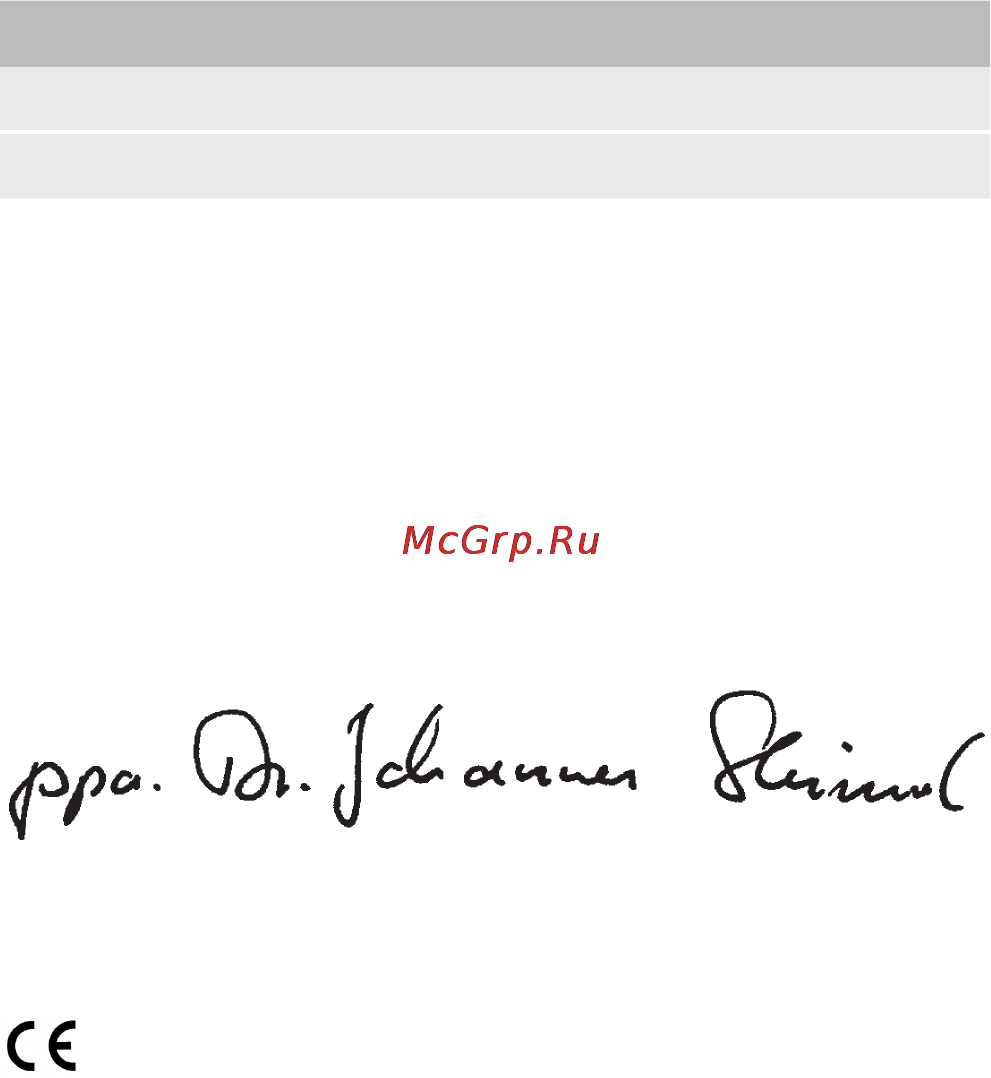 McGrp.Ru
ppa. Dr. Johannes
CE